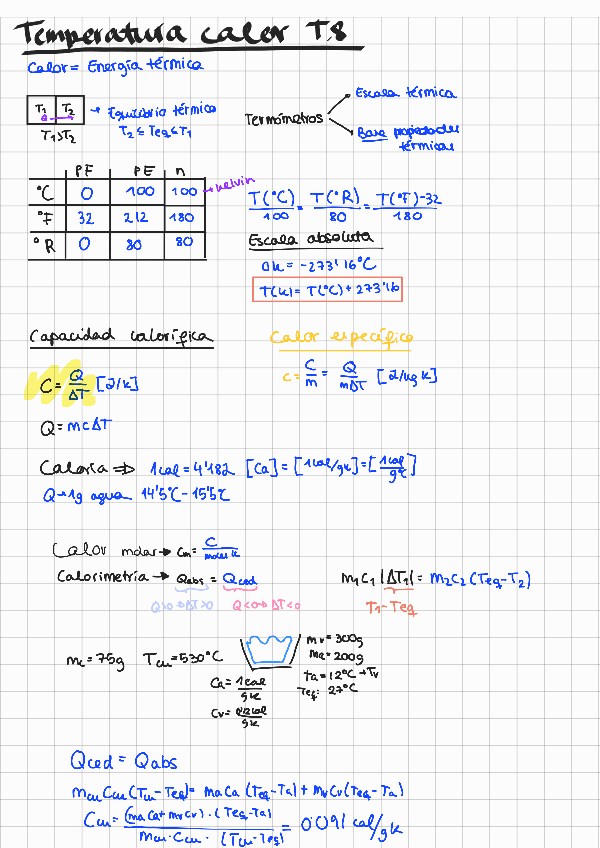 Temperatura calor T.8
Calor = Energía térmica
T₁ T₂ → Equilibrio térmico
Q
T₁>T₂
T₂ ≤ Teq ≤ T₁
Termómetros
Escala térmica
Base propiedades térmicas
PF PE n
°C 0 100 100 → kelvin
°F 32 212 180
°R 0 80 80
T(°C)/100 = T(°R)/80 = T(°F)-32/180
Escala absoluta
0k = -273'16°C
T(k) = T(°C) + 273'16
Capacidad calorífica
C = Q/ΔT [J/k]
Q = mcΔT
Calor específico
c = C/m = Q/mΔT [J/kg k]
Caloría ⇒ 1cal = 4'182 [Ca] = [1cal/gk] = [1cal/g°C]
Q → 1g agua 14'5°C - 15'5°C
Calor molar → Cm = C/moles k
Calorimetría → Qabs = Qced
Q>0 → ΔT>0 Q<0 → ΔT<0
m₁c₁ |ΔT₁| = m₂c₂ (Teq - T₂)
T₁ - Teq
mc = 75g Tcu = 530°C
mv = 300g
ma = 200g
ta = 12°C → Tv
Teq: 27°C
Ca = 1cal/gk
Cv = 0'12cal/gk
Qced = Qabs
mcu Ccu (Tcu - Teq) = maCa (Teq - Ta) + mvCv (Teq - Ta)
Ccu = (maCa + mvCv) · (Teq - Ta)/mcu · Ccu · (Tcu - Teq) = 0'091 cal/gk